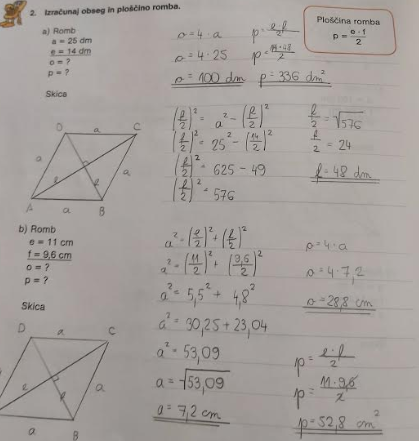 2. Izračunaj obseg in ploščino romba.
Ploščina romba
p = e · f / 2
a) Romb
a = 25 dm
e = 14 dm
o = ?
p = ?
Skica
o = 4 · a
o = 4 · 25
o = 100 dm
p = e · f / 2
p = 14 · 48 / 2
p = 336 dm²
D a C
a a
e f
A a B
(f/2)² = a² - (e/2)²
(f/2)² = 25² - (14/2)²
(f/2)² = 625 - 49
(f/2)² = 576
f/2 = √576
f/2 = 24
f = 48 dm
b) Romb
e = 11 cm
f = 9,6 cm
o = ?
p = ?
Skica
D a C
e f a
a B
a² = (e/2)² + (f/2)²
a² = (11/2)² + (9,6/2)²
a² = 5,5² + 4,8²
a² = 30,25 + 23,04
a² = 53,09
a = √53,09
a = 7,2 cm
o = 4 · a
o = 4 · 7,2
o = 28,8 cm
p = e · f / 2
p = 11 · 9,6 / 2
p = 52,8 cm²